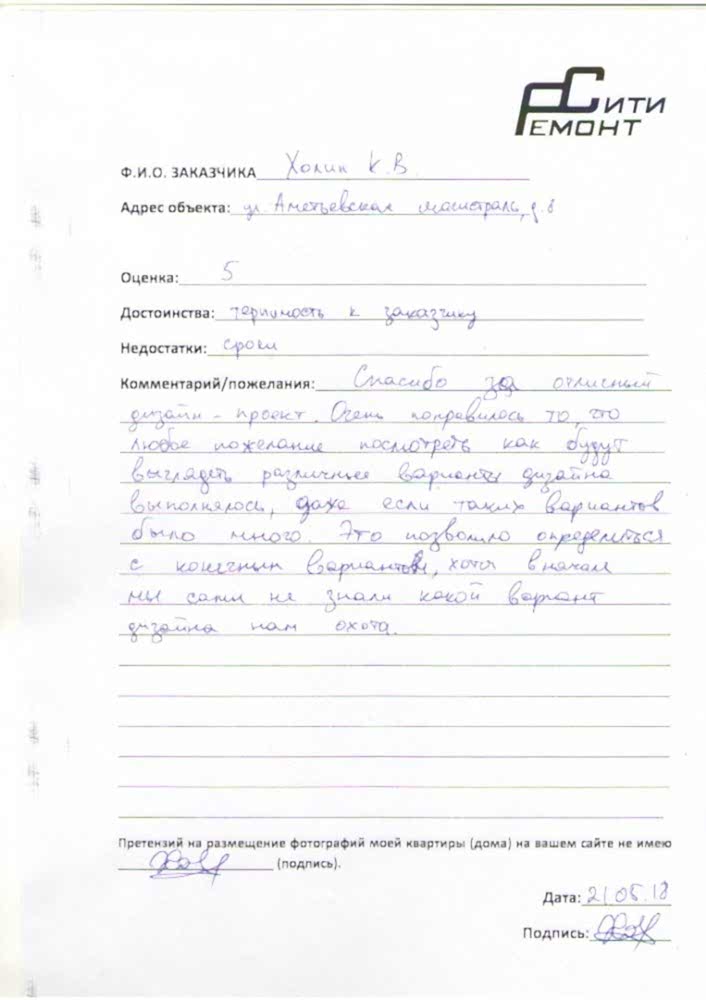 СИТИ
РЕМОНТ
Ф.И.О. ЗАКАЗЧИКА Холин К.В.
Адрес объекта: ул. Аметьевская магистраль, д. 8
Оценка: 5
Достоинства: терпимость к заказчику
Недостатки: сроки
Комментарий/пожелания: Спасибо за отличный
дизайн-проект. Очень понравилось то, что
любое пожелание посмотреть как будут
выглядеть различные варианты дизайна
выполнялось, даже если таких вариантов
было много. Это позволило определиться
с конечным вариантом, хотя вначале
мы сами не знали какой вариант
дизайна нам охота.
Претензий на размещение фотографий моей квартиры (дома) на вашем сайте не имею
(подпись).
Дата: 21.05.18
Подпись: